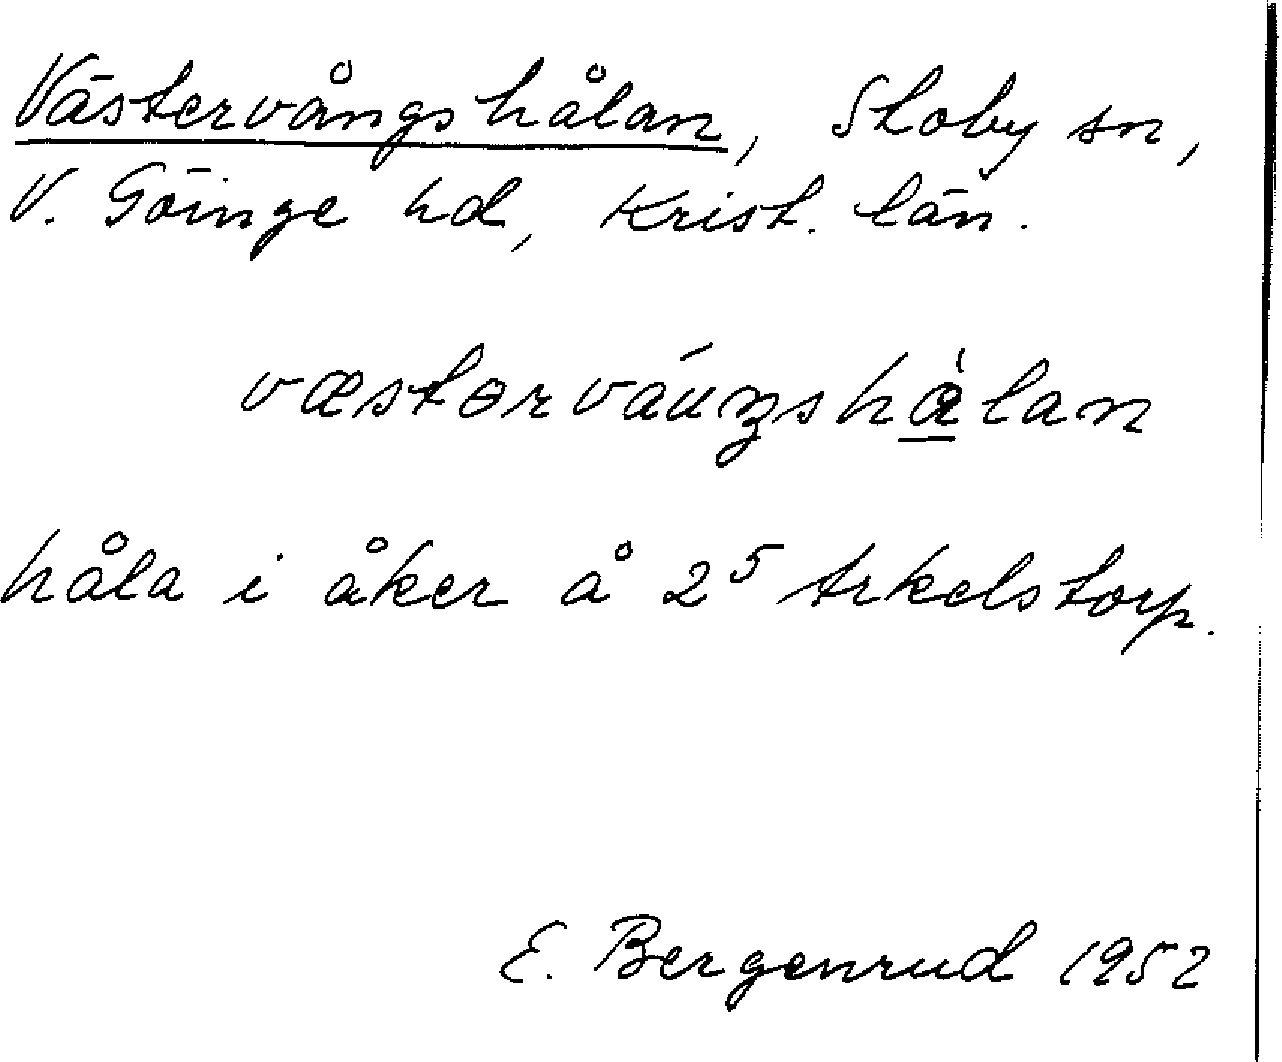 Västervångshålan, Stoby sn,
V. Göinge hd, Krist. län.
væstərváuŋshå̀lan
håla i åker å 2⁵ Arkelstorp.
E. Bergenrud 1952